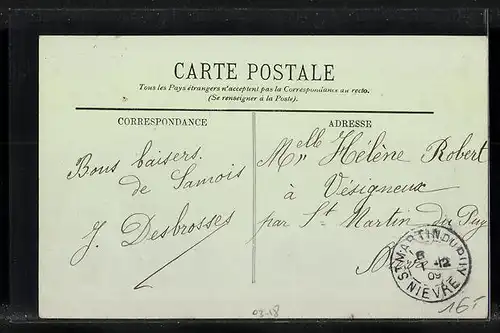 CARTE POSTALE
Tous les Pays étrangers n'acceptent pas la Correspondance au recto.
(Se renseigner à la Poste).
CORRESPONDANCE
Bons baisers.
de Samois
J. Desbrosses
ADRESSE
Melle Hélène Robert
à Vésigneux
par St Martin du Puy
ST MARTIN DU PUY
NIEVRE
09
03-18
16F